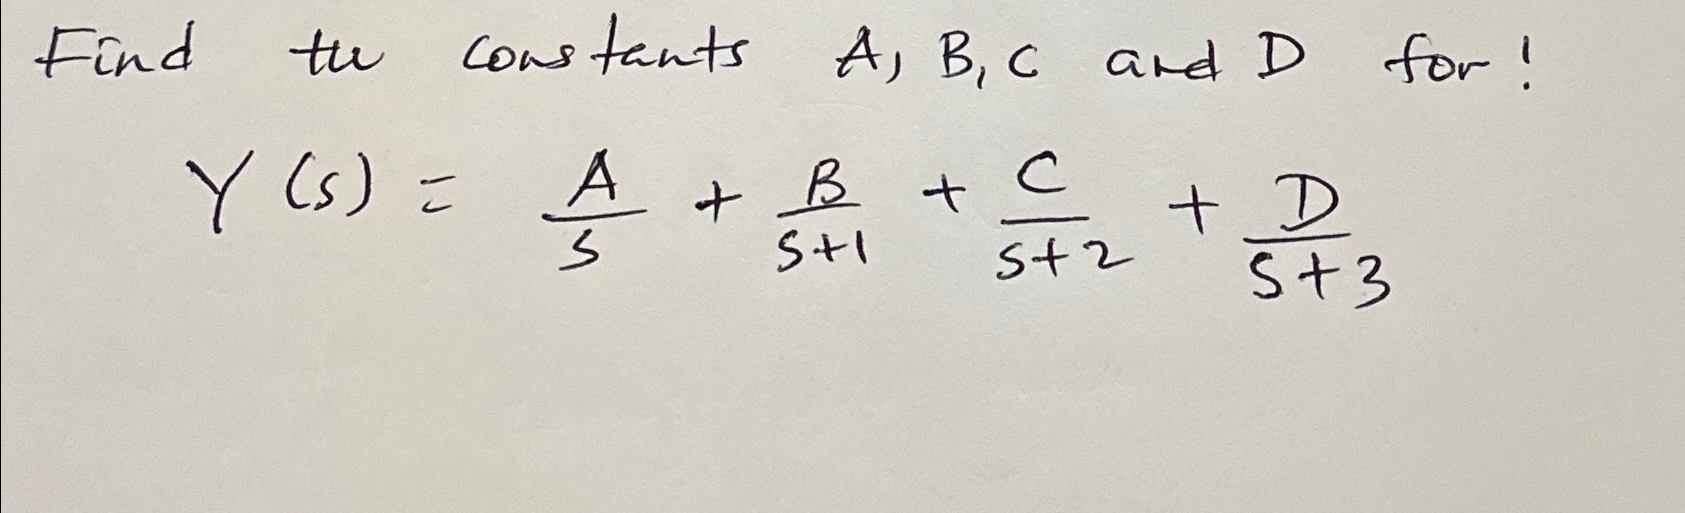 Find the constants A, B, C and D for!
Y(s) = A/s + B/s+1 + C/s+2 + D/s+3